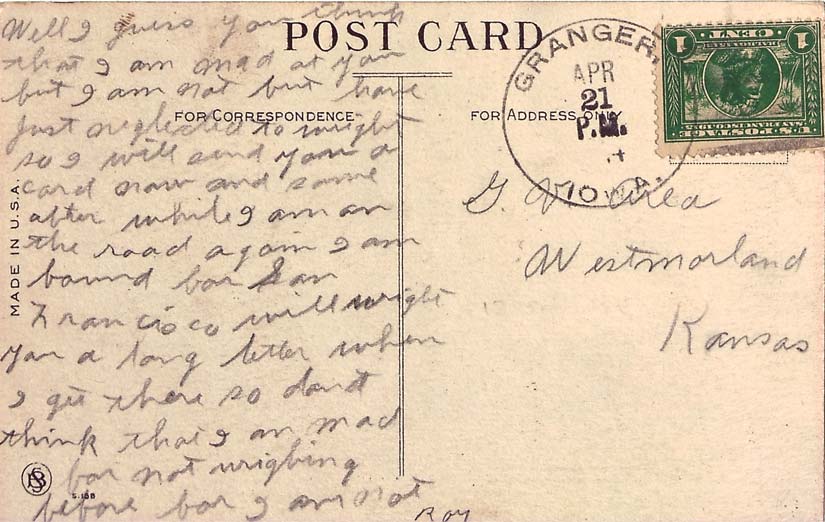 POST CARD
FOR CORRESPONDENCE
FOR ADDRESS ONLY
MADE IN U.S.A.
Well I guess you think
that I am mad at you
but I am not but have
just neglected to wright
so I will send you a
card now and some
after while I am on
the road again I am
bound for San
Francisco will wright
you a long letter when
I get there so dont
think that I am mad
for not wrighting
before for I am not
Roy
S-158
GRANGER,
APR
21
P.M.
IOWA.
1 CENT 1
BALBOA 1513
U.S. POSTAGE
SAN FRANCISCO 1915
G. V.
Westmorland
Kansas